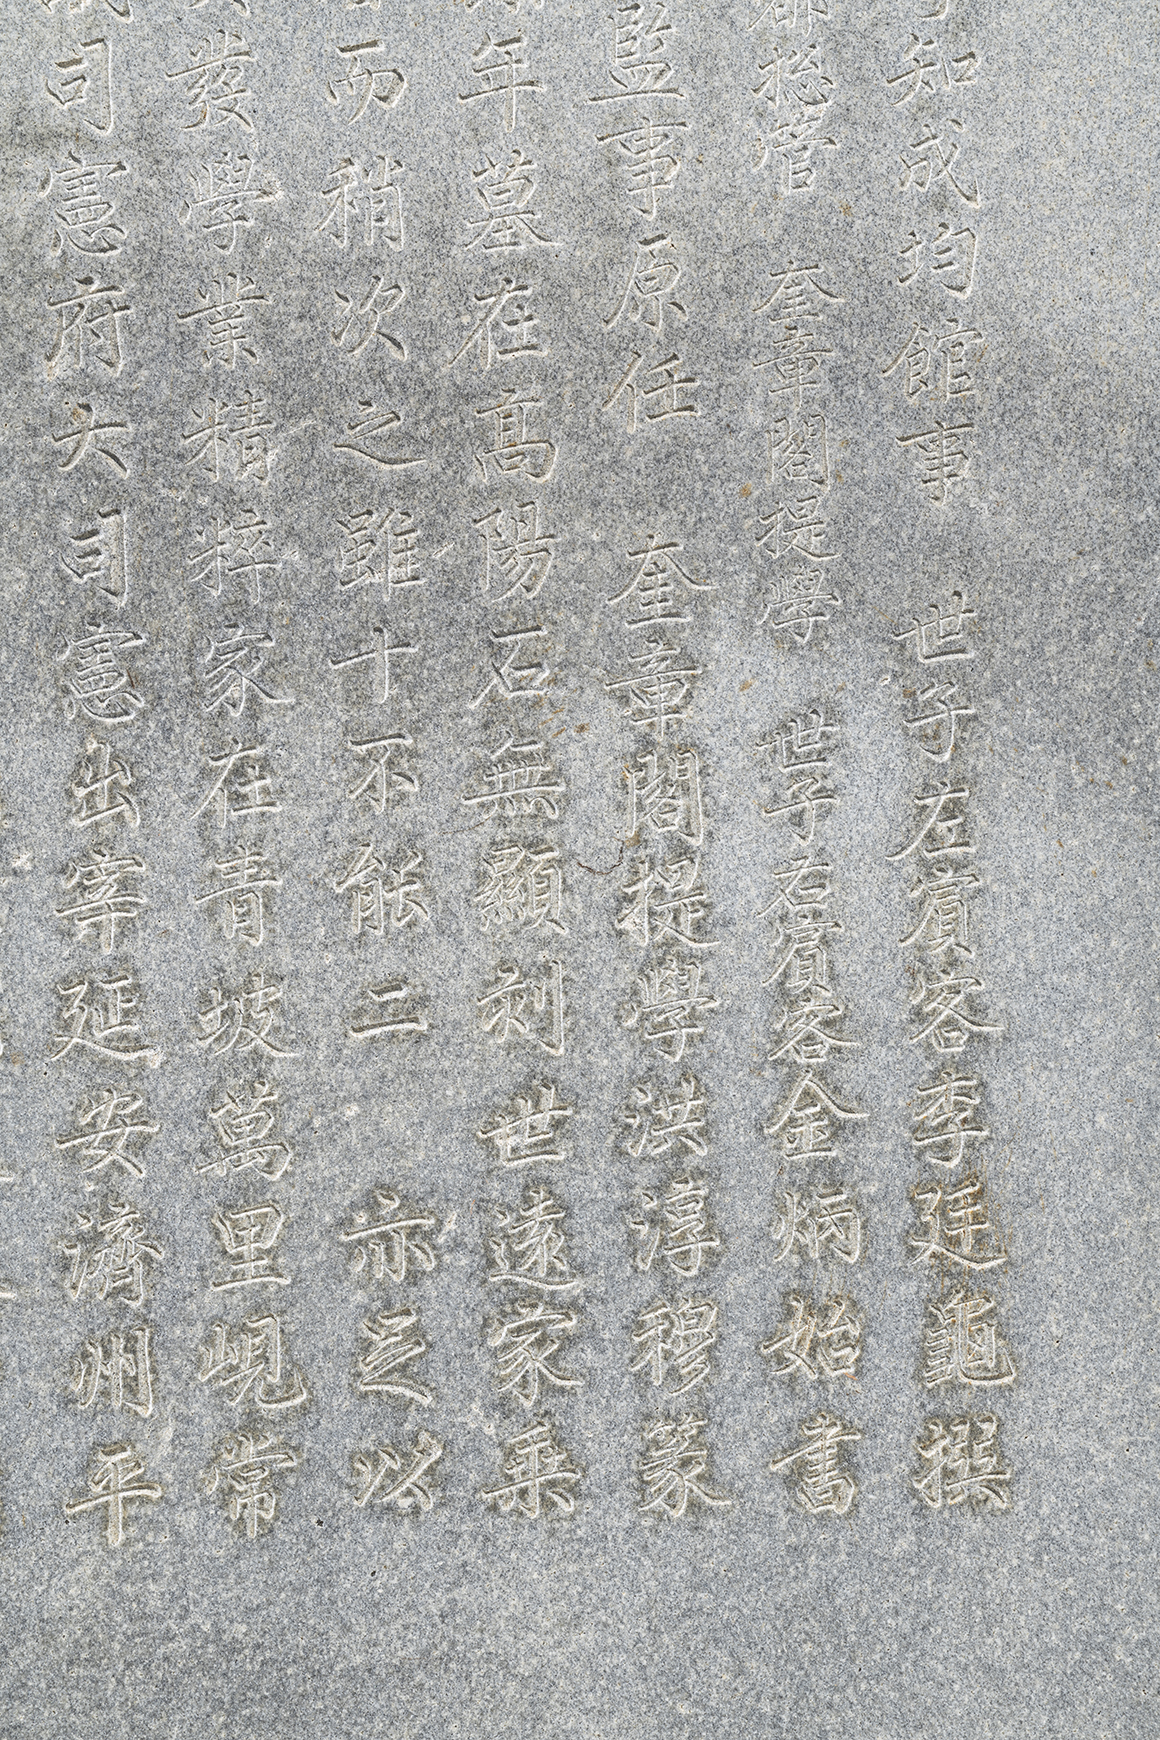 知成均館事 世子左賓客李廷龜撰
都摠管 奎章閣提學 世子右賓客金炳始書
監事原任 奎章閣提學洪淳穆篆
年墓在高陽石無顯刻世遠家乘
而稍次之雖十不能二 亦足以
發學業精粹家在靑坡萬里峴常
司憲府大司憲出宰延安濟州平